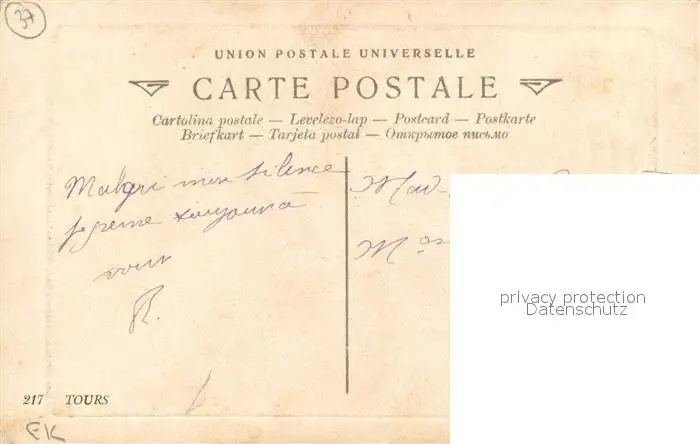 37
UNION POSTALE UNIVERSELLE
CARTE POSTALE
Cartolina postale — Levelezo-lap — Postcard — Postkarte
Briefkart — Tarjeta postal — Открытое письмо
Malgré mon silence
je pense toujours à
vous
R.
Mad
M on
privacy protection
Datenschutz
217 TOURS
EK